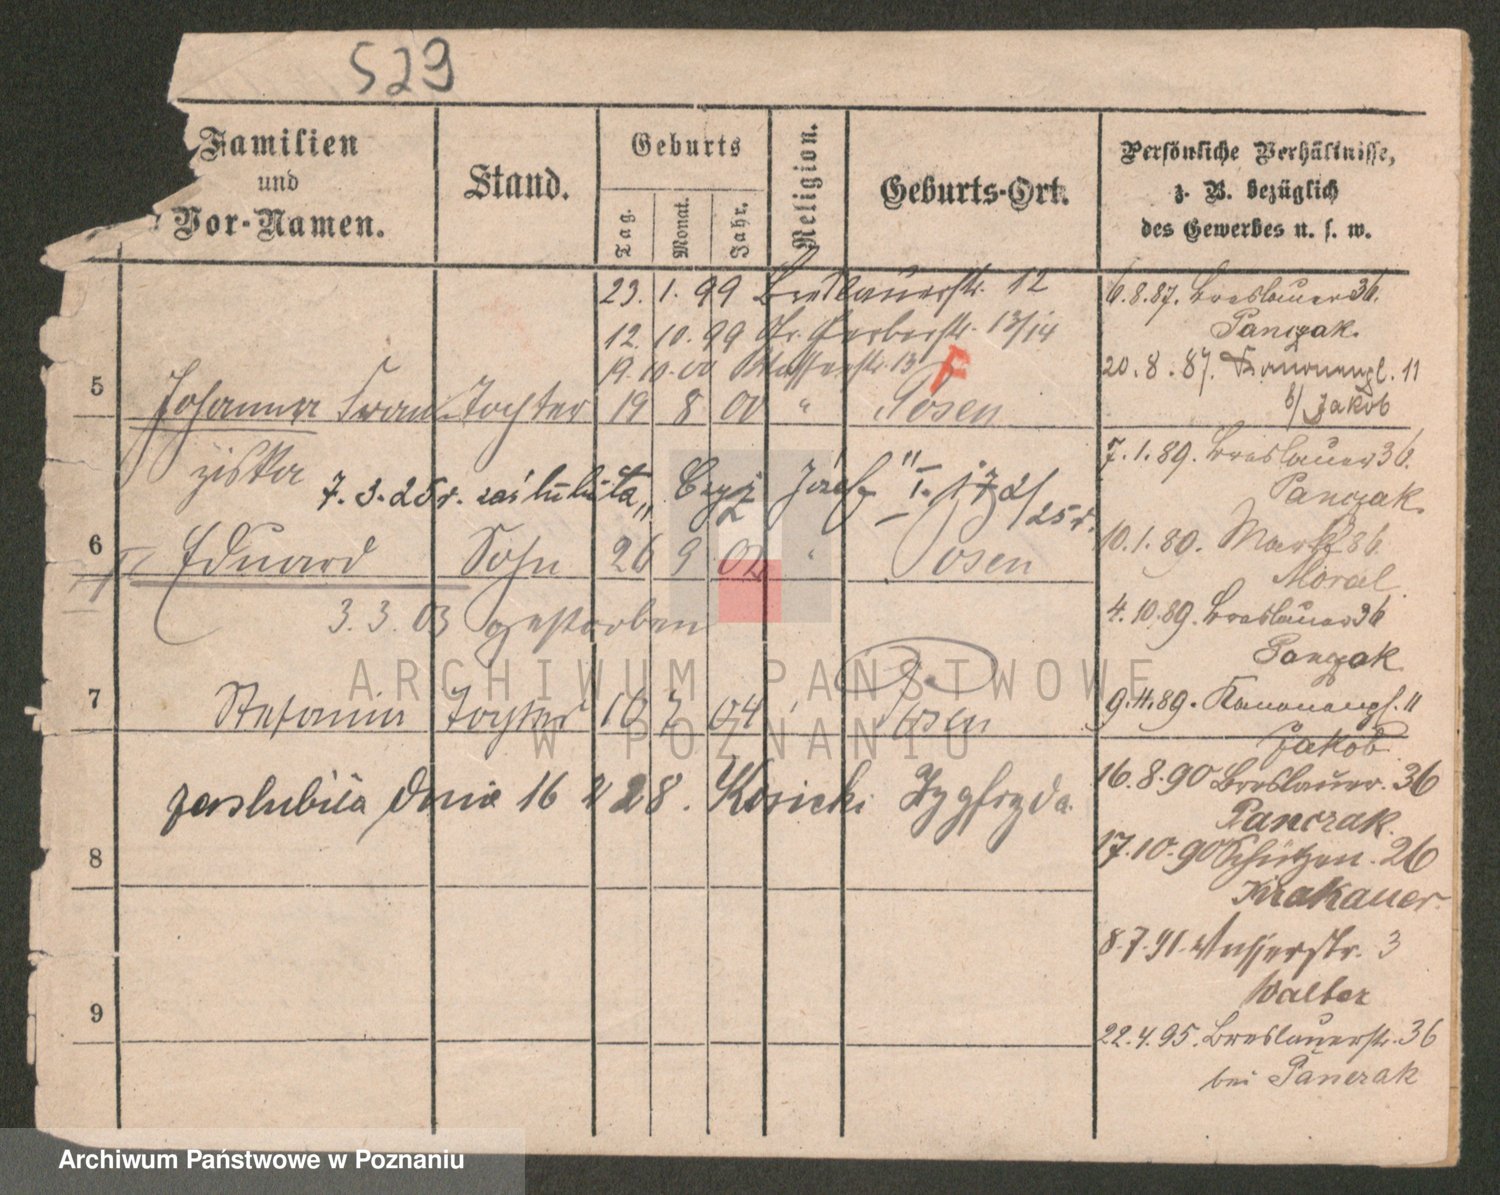 529
Familien
und
Vor-Namen.
Stand.
Geburts
Tag.
Monat.
Jahr.
Religion.
Geburts-Ort.
Persönliche Verhältnisse,
z. B. bezüglich
des Gewerbes u. s. w.
23. 1. 99 Breslauerstr. 12
12. 10. 99 Gr. Gerberstr. 13/14
19. 10. 00 Wasserstr. 13
F
5 Johanna Fran- Tochter 19 8 00 " Posen
ziska
7. 3. 25 r. zaślubiła " Czyż Józef " 172/25 r.
6 Eduard Sohn 26 9 02 " Posen
3. 3. 03 gestorben
7 Stefania Tochter 16 7 04 Posen
zaslubiła dnia 16 28. Kosicki Zygfryda
8
9
6.8.87. Breslauer 36.
Panczak.
20.8.87. Kanonenpl. 11
b/ Jakob
7.1.89. Breslauer 36.
Panczak.
10.1.89. Markt 86.
Moral.
4.10.89. Breslauer 36
Panczak
9.11.89. Kanonenpl. 11
Jakob.
16.8.90 Breslauer. 36
Panczak.
17.10.90 Schützen. 26
Krakauer.
8.7.91. Wasserstr. 3
Walter
22.4.95. Breslauerstr. 36
bei Panczak
ARCHIWUM PAŃSTWOWE
W POZNANIU
Archiwum Państwowe w Poznaniu